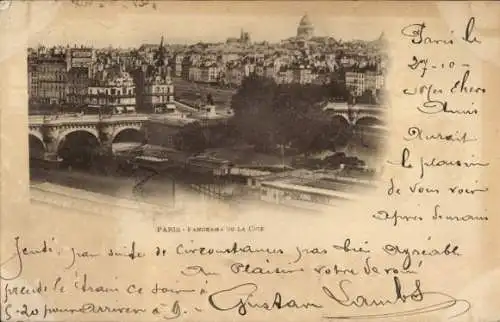 Paris le
27-10-
Mes Chers
Amis
Aurait
le plaisir
de vous voir
Après demain
PARIS - PANORAMA DE LA CITÉ
Jeudi par suite de circonstances pas bien Agréable
Au Plaisir votre de voir
prende le train ce soir à
5-20 pour Arriver à 9-
Gustav